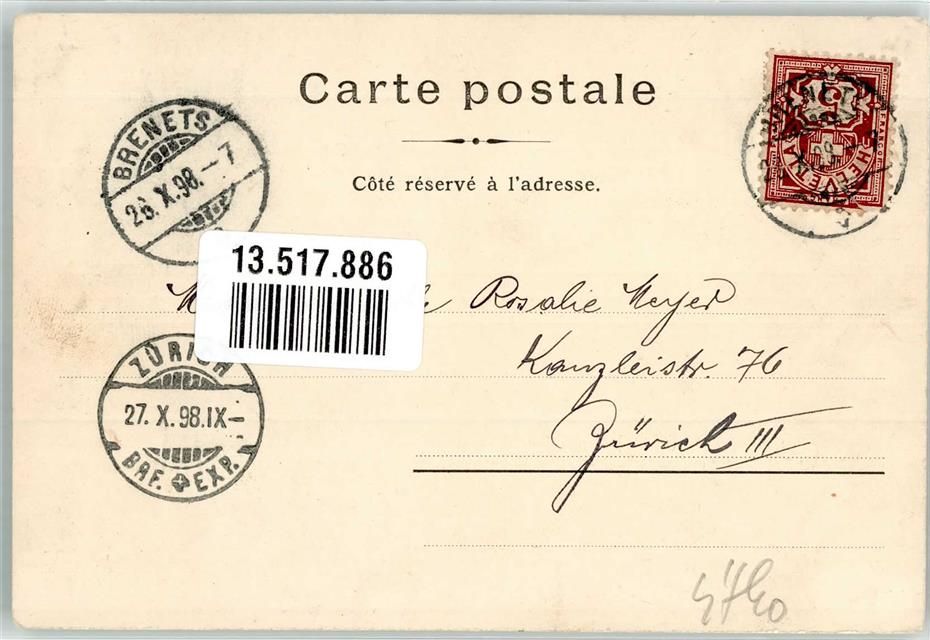 Carte postale
Côté réservé à l'adresse.
BRENETS
26.X.98.–7
HELVETIA
13.517.886
Rosalie Meyer
Kanzleistr. 76
Zürich III
ZÜRICH
27.X.98.IX–
BRF. EXP.